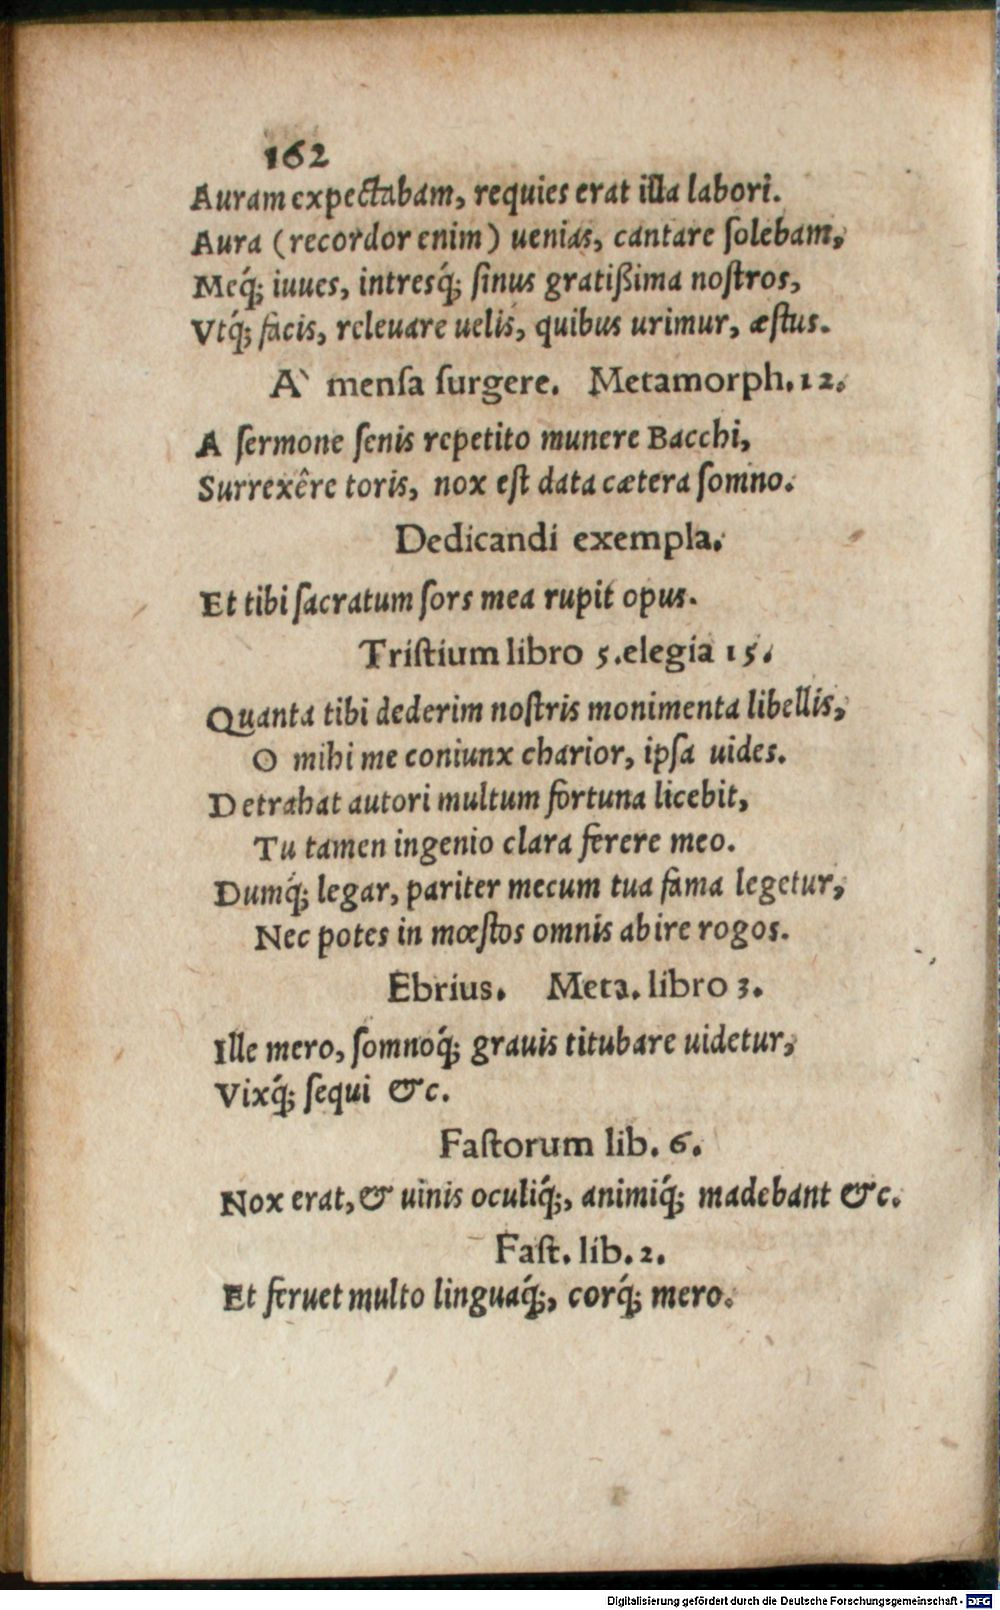 162
Auram expectabam, requies erat illa labori.
Aura (recordor enim) uenias, cantare ſolebam,
Meq́; iuues, intresq́; ſinus gratißima noſtros,
Vtq́; facis, releuare uelis, quibus urimur, æſtus.
A` menſa ſurgere. Metamorph. 12.
A ſermone ſenis repetito munere Bacchi,
Surrexêre toris, nox eſt data cætera ſomno.
Dedicandi exempla.
Et tibi ſacratum ſors mea rupit opus.
Triſtium libro 5. elegia 15.
Quanta tibi dederim noſtris monimenta libellis,
O mihi me coniunx charior, ipſa uides.
Detrahat autori multum fortuna licebit,
Tu tamen ingenio clara ferere meo.
Dumq́; legar, pariter mecum tua fama legetur,
Nec potes in mœſtos omnis abire rogos.
Ebrius. Meta. libro 3.
Ille mero, ſomnoq́; grauis titubare uidetur,
Vixq́; ſequi &c.
Faſtorum lib. 6.
Nox erat, & uinis oculiq́;, animiq́; madebant &c.
Faſt. lib. 2.
Et feruet multo linguaq́;, corq́; mero.
Digitalisierung gefördert durch die Deutsche Forschungsgemeinschaft - DFG